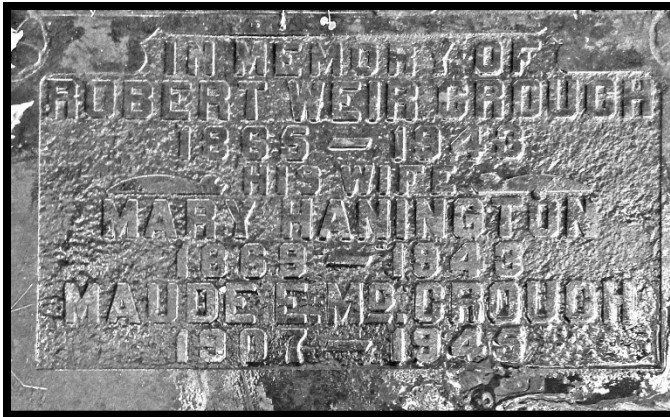 IN MEMORY OF
ROBERT WEIR CROUCH
1865 – 1943
HIS WIFE
MARY HANINGTON
1869 – 1943
MAUDE E. MD. CROUCH
1907 – 1945